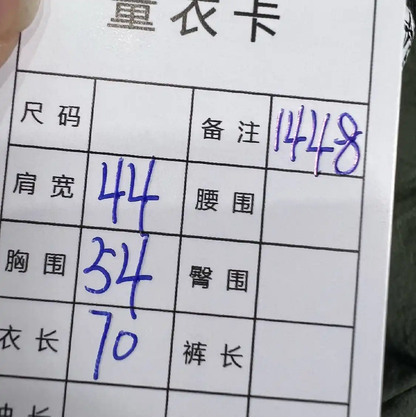 量衣卡
尺码 备注 1448
肩宽 44 腰围
胸围 54 臀围
衣长 70 裤长